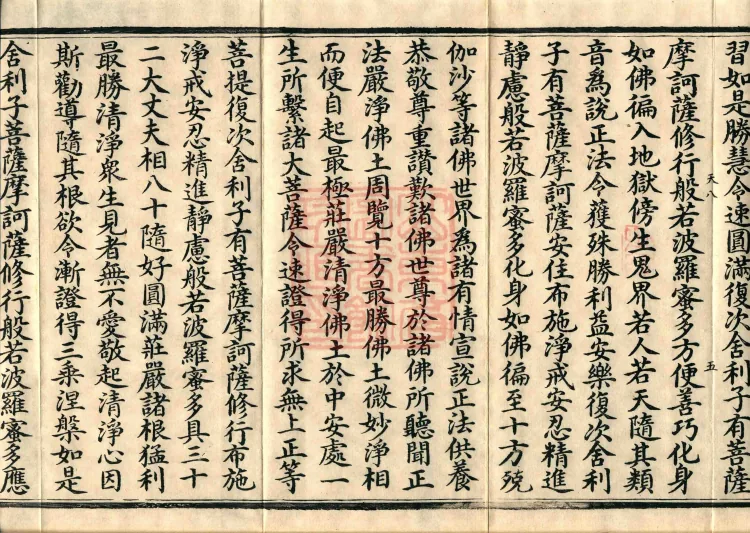 習如是勝慧令速圓滿復次舍利子有菩薩
摩訶薩修行般若波羅蜜多方便善巧化身
天八
五
如佛徧入地獄傍生鬼界若人若天隨其類
音爲說正法令獲殊勝利益安樂復次舍利
子有菩薩摩訶薩安住布施淨戒安忍精進
靜慮般若波羅蜜多化身如佛徧至十方殑
伽沙等諸佛世界爲諸有情宣說正法供養
恭敬尊重讚歎諸佛世尊於諸佛所聽聞正
法嚴淨佛土周覽十方最勝佛土微妙淨相
而便自起最極莊嚴清淨佛土於中安處一
生所繫諸大菩薩令速證得所求無上正等
菩提復次舍利子有菩薩摩訶薩修行布施
淨戒安忍精進靜慮般若波羅蜜多具三十
二大丈夫相八十隨好圓滿莊嚴諸根猛利
最勝清淨衆生見者無不愛敬起清淨心因
斯勸導隨其根欲令漸證得三乘涅槃如是
舍利子菩薩摩訶薩修行般若波羅蜜多應